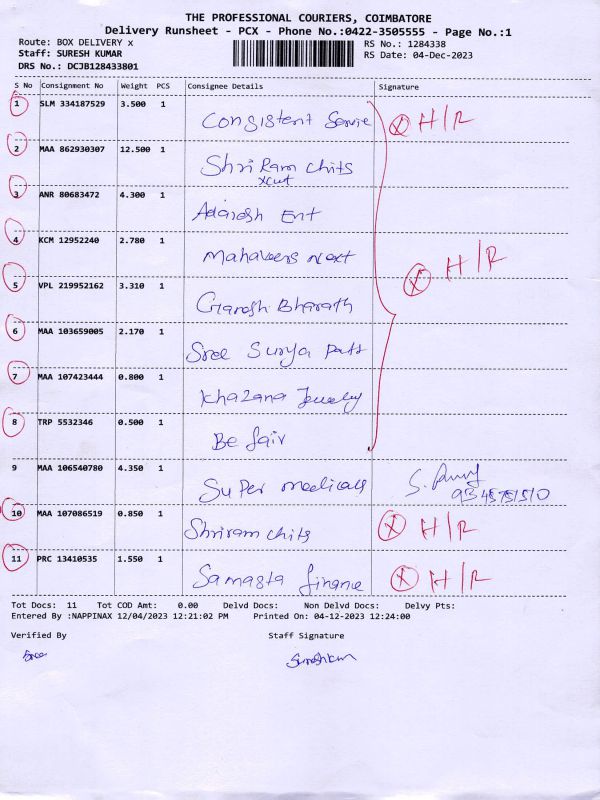 THE PROFESSIONAL COURIERS, COIMBATORE
Delivery Runsheet - PCX - Phone No.:0422-3505555 - Page No.:1
Route: BOX DELIVERY x RS No.: 1284338
Staff: SURESH KUMAR RS Date: 04-Dec-2023
DRS No.: DCJB128433801
S No Consignment No Weight PCS Consignee Details Signature
1 SLM 334187529 3.500 1 Consistent Servie X H/R
2 MAA 862930307 12.500 1 Shri Ram Chits
xcut
3 ANR 80683472 4.300 1 Adarsh Ent
4 KCM 12952240 2.780 1 Mahaveers Next X H/R
5 VPL 219952162 3.310 1 Ganesh Bharath
6 MAA 103659005 2.170 1 Sree Surya
7 MAA 107423444 0.800 1 Khazana Jewelry
8 TRP 5532346 0.500 1 Be fair
9 MAA 106540780 4.350 1 Super medicals S.
10 MAA 107086519 0.850 1 Shriram chits X H/R
11 PRC 13410535 1.550 1 Samasta finance X H/R
Tot Docs: 11 Tot COD Amt: 0.00 Delvd Docs: Non Delvd Docs: Delvy Pts:
Entered By :NAPPINAX 12/04/2023 12:21:02 PM Printed On: 04-12-2023 12:24:00
Verified By Staff Signature
Sree Sureshkum